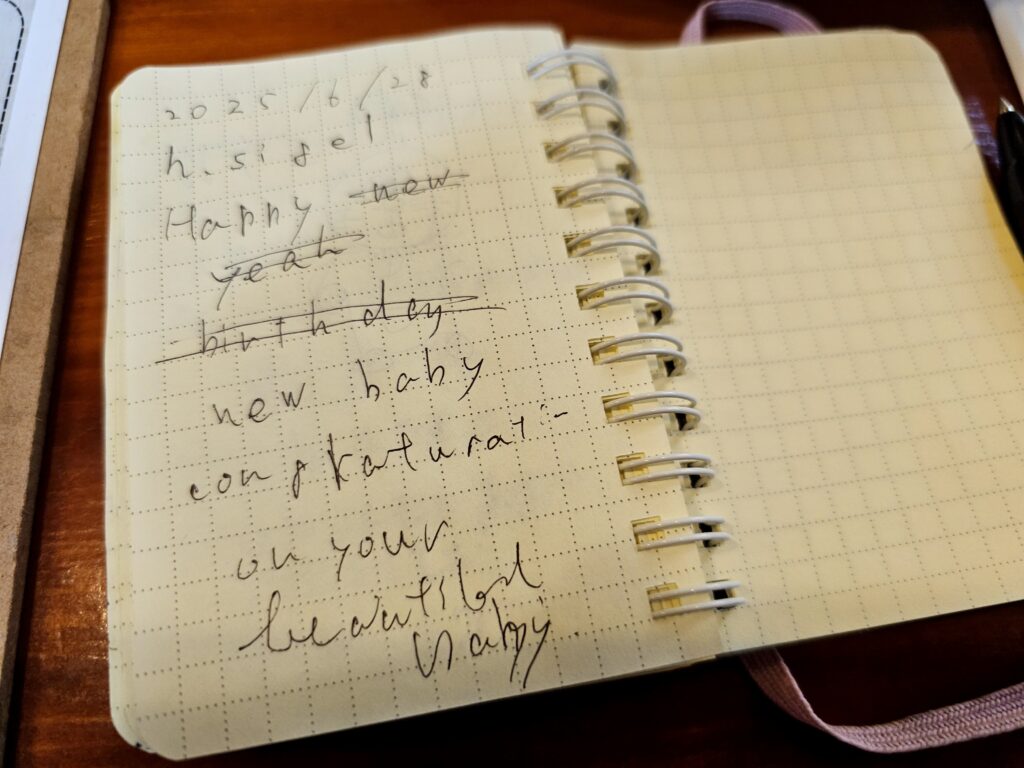 2025/6/28
h. sigel
Happy new
yeah
birthday
new baby
congraturati-
on your
beautiful
baby